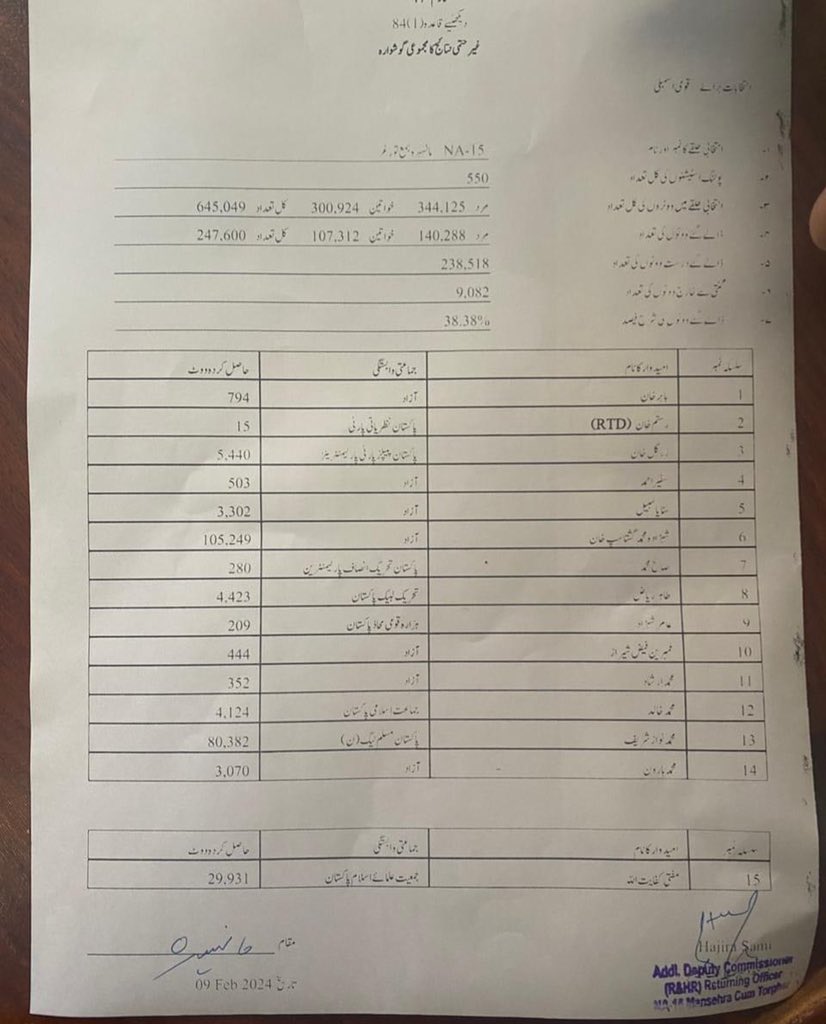 دیکھئیے قاعدہ (1)84
غیر حتمی نتائج کا مجموعی گوشوارہ
انتخابات برائے قومی اسمبلی
۱۔ انتخابی حلقے کا نمبر اور نام NA-15 مانسہرہ بمع تورغر
۲۔ پولنگ اسٹیشنوں کی کل تعداد 550
۳۔ انتخابی حلقے میں ووٹروں کی کل تعداد مرد 344,125 خواتین 300,924 کل تعداد 645,049
۴۔ ڈالے گئے ووٹوں کی تعداد مرد 140,288 خواتین 107,312 کل تعداد 247,600
۵۔ ڈالے گئے درست ووٹوں کی تعداد 238,518
۶۔ گنتی سے خارج ووٹوں کی تعداد 9,082
۷۔ ڈالے گئے ووٹوں کی شرح فیصد 38.38%
سلسلہ نمبر امیدوار کا نام جماعتی وابستگی حاصل کردہ ووٹ
1 بابر خان آزاد 794
2 رستم خان (RTD) پاکستان نظریاتی پارٹی 15
3 زر گل خان پاکستان پیپلز پارٹی پارلیمنٹیرینز 5,440
4 سفیر احمد آزاد 503
5 سبیل آزاد 3,302
6 شہزادہ محمد گشتاسپ خان آزاد 105,249
7 صالح محمد پاکستان تحریک انصاف پارلیمنٹیرین 280
8 طاہر ریاض تحریک لبیک پاکستان 4,423
9 عامر شہزاد ہزارہ قومی محاذ پاکستان 209
10 بن فیض شیراز آزاد 444
11 محمد ارشاد آزاد 352
12 محمد خالد جماعت اسلامی پاکستان 4,124
13 محمد نواز شریف پاکستان مسلم لیگ (ن) 80,382
14 محمد ہارون آزاد 3,070
سلسلہ نمبر امیدوار کا نام جماعتی وابستگی حاصل کردہ ووٹ
15 مفتی کفایت اللہ جمعیت علمائے اسلام پاکستان 29,931
مقام مانسہرہ
تاریخ 09 Feb 2024
Hajira Sami
Addl. Deputy Commissioner
(R&HR) Returning Officer
Mansehra Cum Torghar